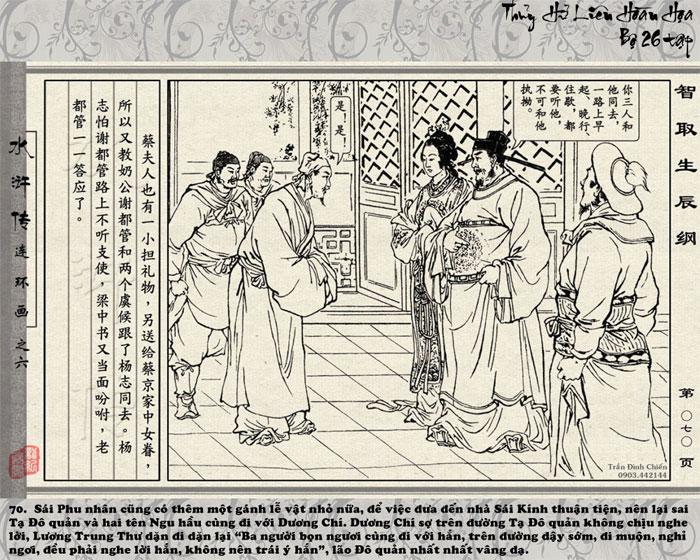 Thủy Hử Liên Hoàn Họa
Bộ 26 tập
智取生辰纲
第〇七〇页
你三人和
他同去，
一路上早
起、晚行、
住歇，都
要听他，
不可和他
执拗。
是！是！
蔡夫人也有一小担礼物，另送给蔡京家中女眷，
所以又教奶公谢都管和两个虞候跟了杨志同去。杨
志怕谢都管路上不听支使，梁中书又当面吩咐，老
都管一一答应了。
水浒传连环画之六
Trần Đình Chiến
0903.442144
70. Sái Phu nhân cũng có thêm một gánh lễ vật nhỏ nữa, để việc đưa đến nhà Sái Kinh thuận tiện, nên lại sai
Tạ Đô quản và hai tên Ngu hầu cùng đi với Dương Chí. Dương Chí sợ trên đường Tạ Đô quản không chịu nghe
lời, Lượng Trung Thư dặn đi dặn lại “Ba người bọn ngươi cùng đi với hắn, trên đường dậy sớm, đi muộn, nghỉ
ngơi, đều phải nghe lời hắn, không nên trái ý hắn”, lão Đô quản nhất nhất vâng dạ.